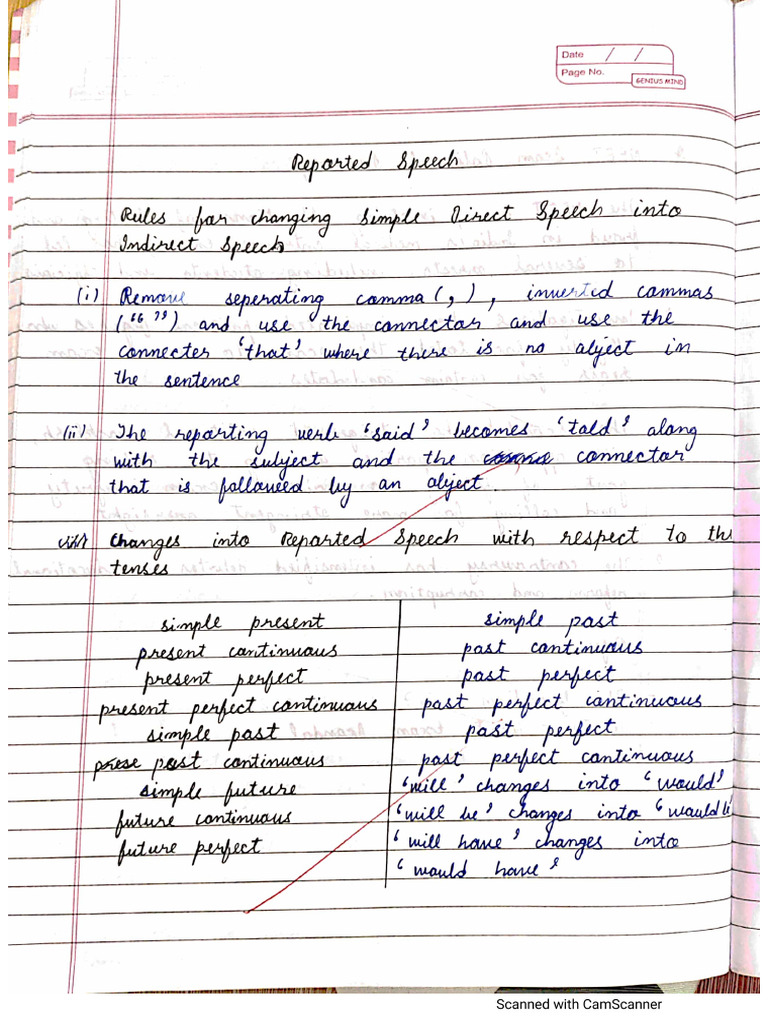 Date / /
Page No.
GENIUS MIND
Reported Speech
Rules for changing Simple Direct Speech into
Indirect Speech
(i) Remove seperating comma (,), inverted commas
(“ ”) and use the connector and use the
connecter ‘that’ where there is no object in
the sentence
(ii) The reporting verb ‘said’ becomes ‘told’ along
with the subject and the connector
that is followed by an object.
(iii) Changes into Reported Speech with respect to the
tenses
simple present simple past
present continuous past continuous
present perfect past perfect
present perfect continuous past perfect continuous
simple past past perfect
prese past continuous past perfect continuous
simple future ‘will’ changes into ‘would’
future continuous ‘will be’ changes into ‘would b
future perfect ‘will have’ changes into
‘would have’
Scanned with CamScanner